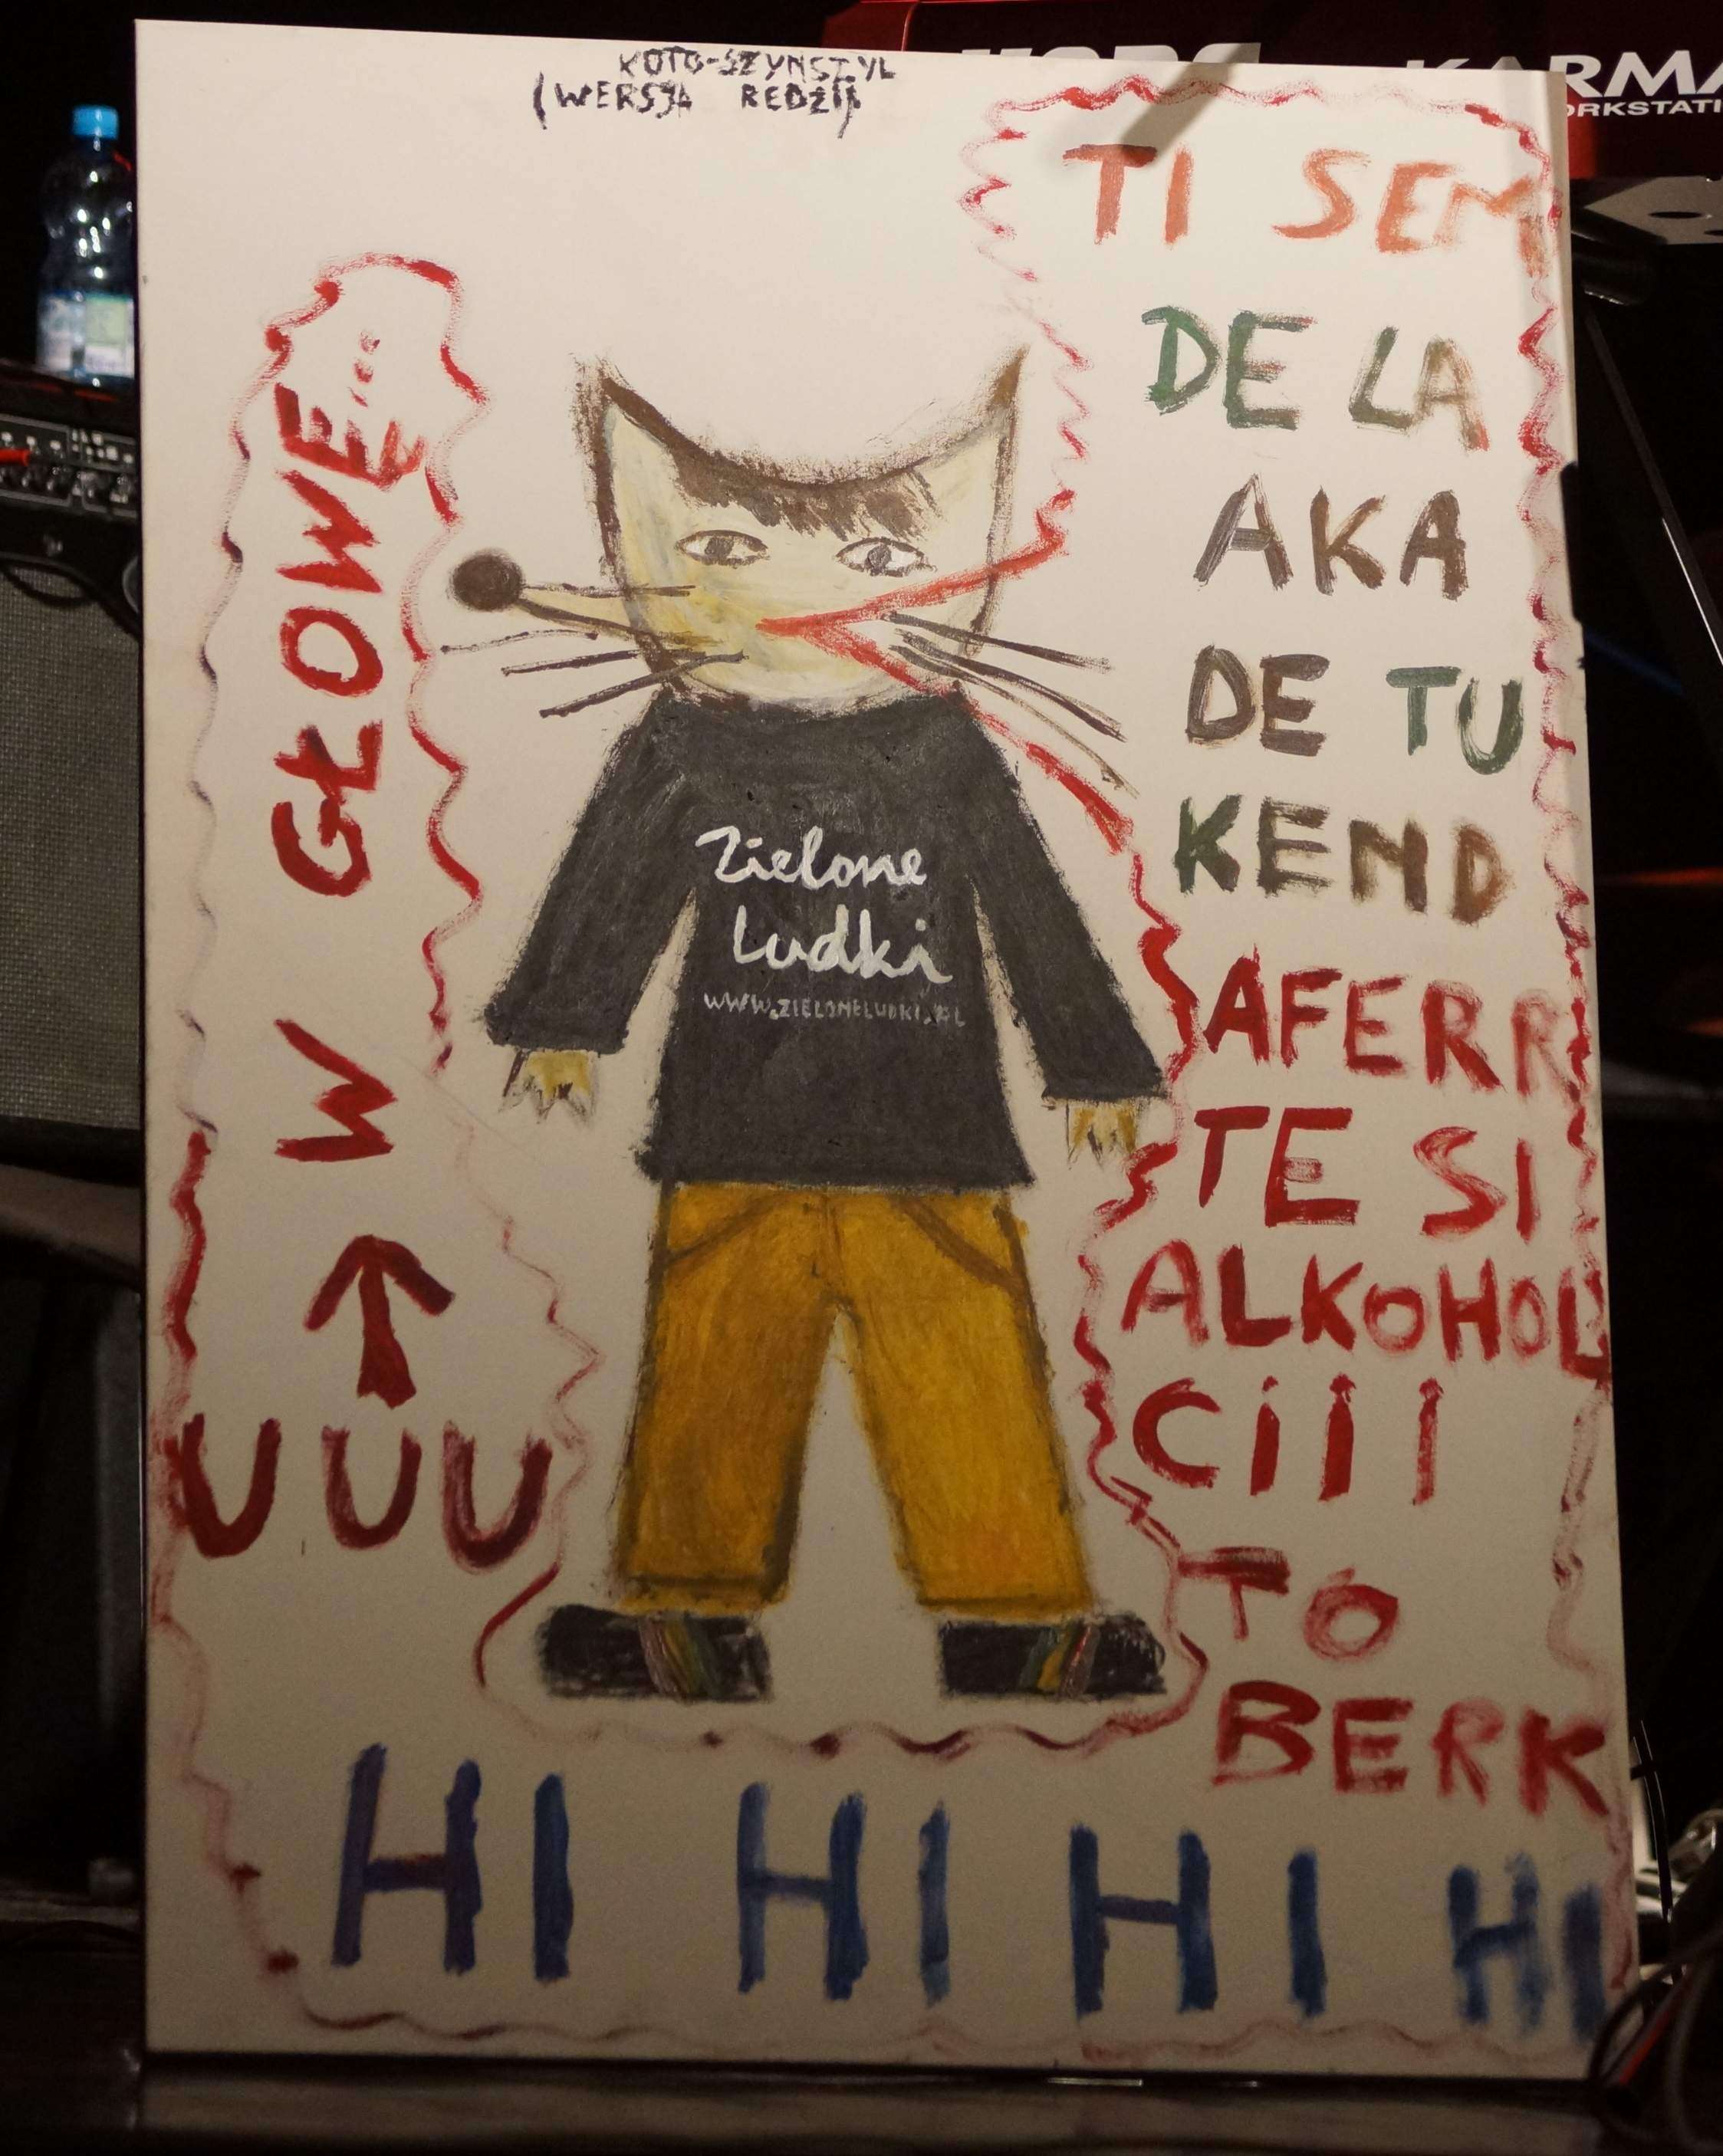 KOTO-SZYNSZYL
(WERSJA REDZI)
KARMA
TI SEM
DE LA
AKA
DE TU
KEND
AFERR
TE SI
ALKOHOL
Ciii
TO
BERK
W GŁOWĘ...
UUU
Zielone
Ludki
WWW.ZIELONELUDKI.PL
HI HI HI HI